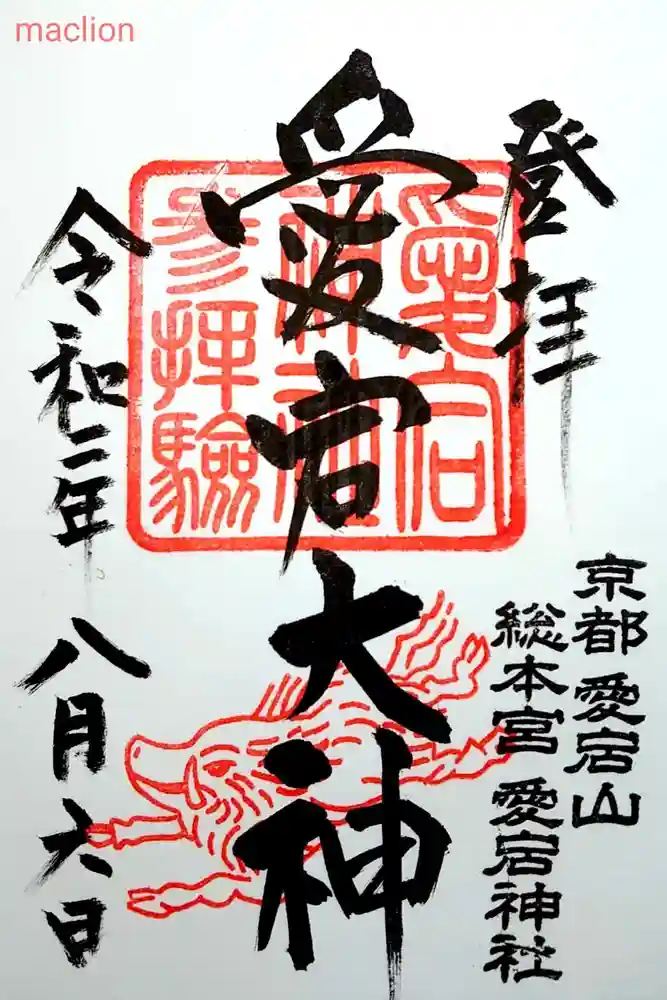 maclion
登拝
京都 愛宕山
総本宮 愛宕神社
愛宕大神
愛宕
神社
参拝驗
令和二年 八月六日